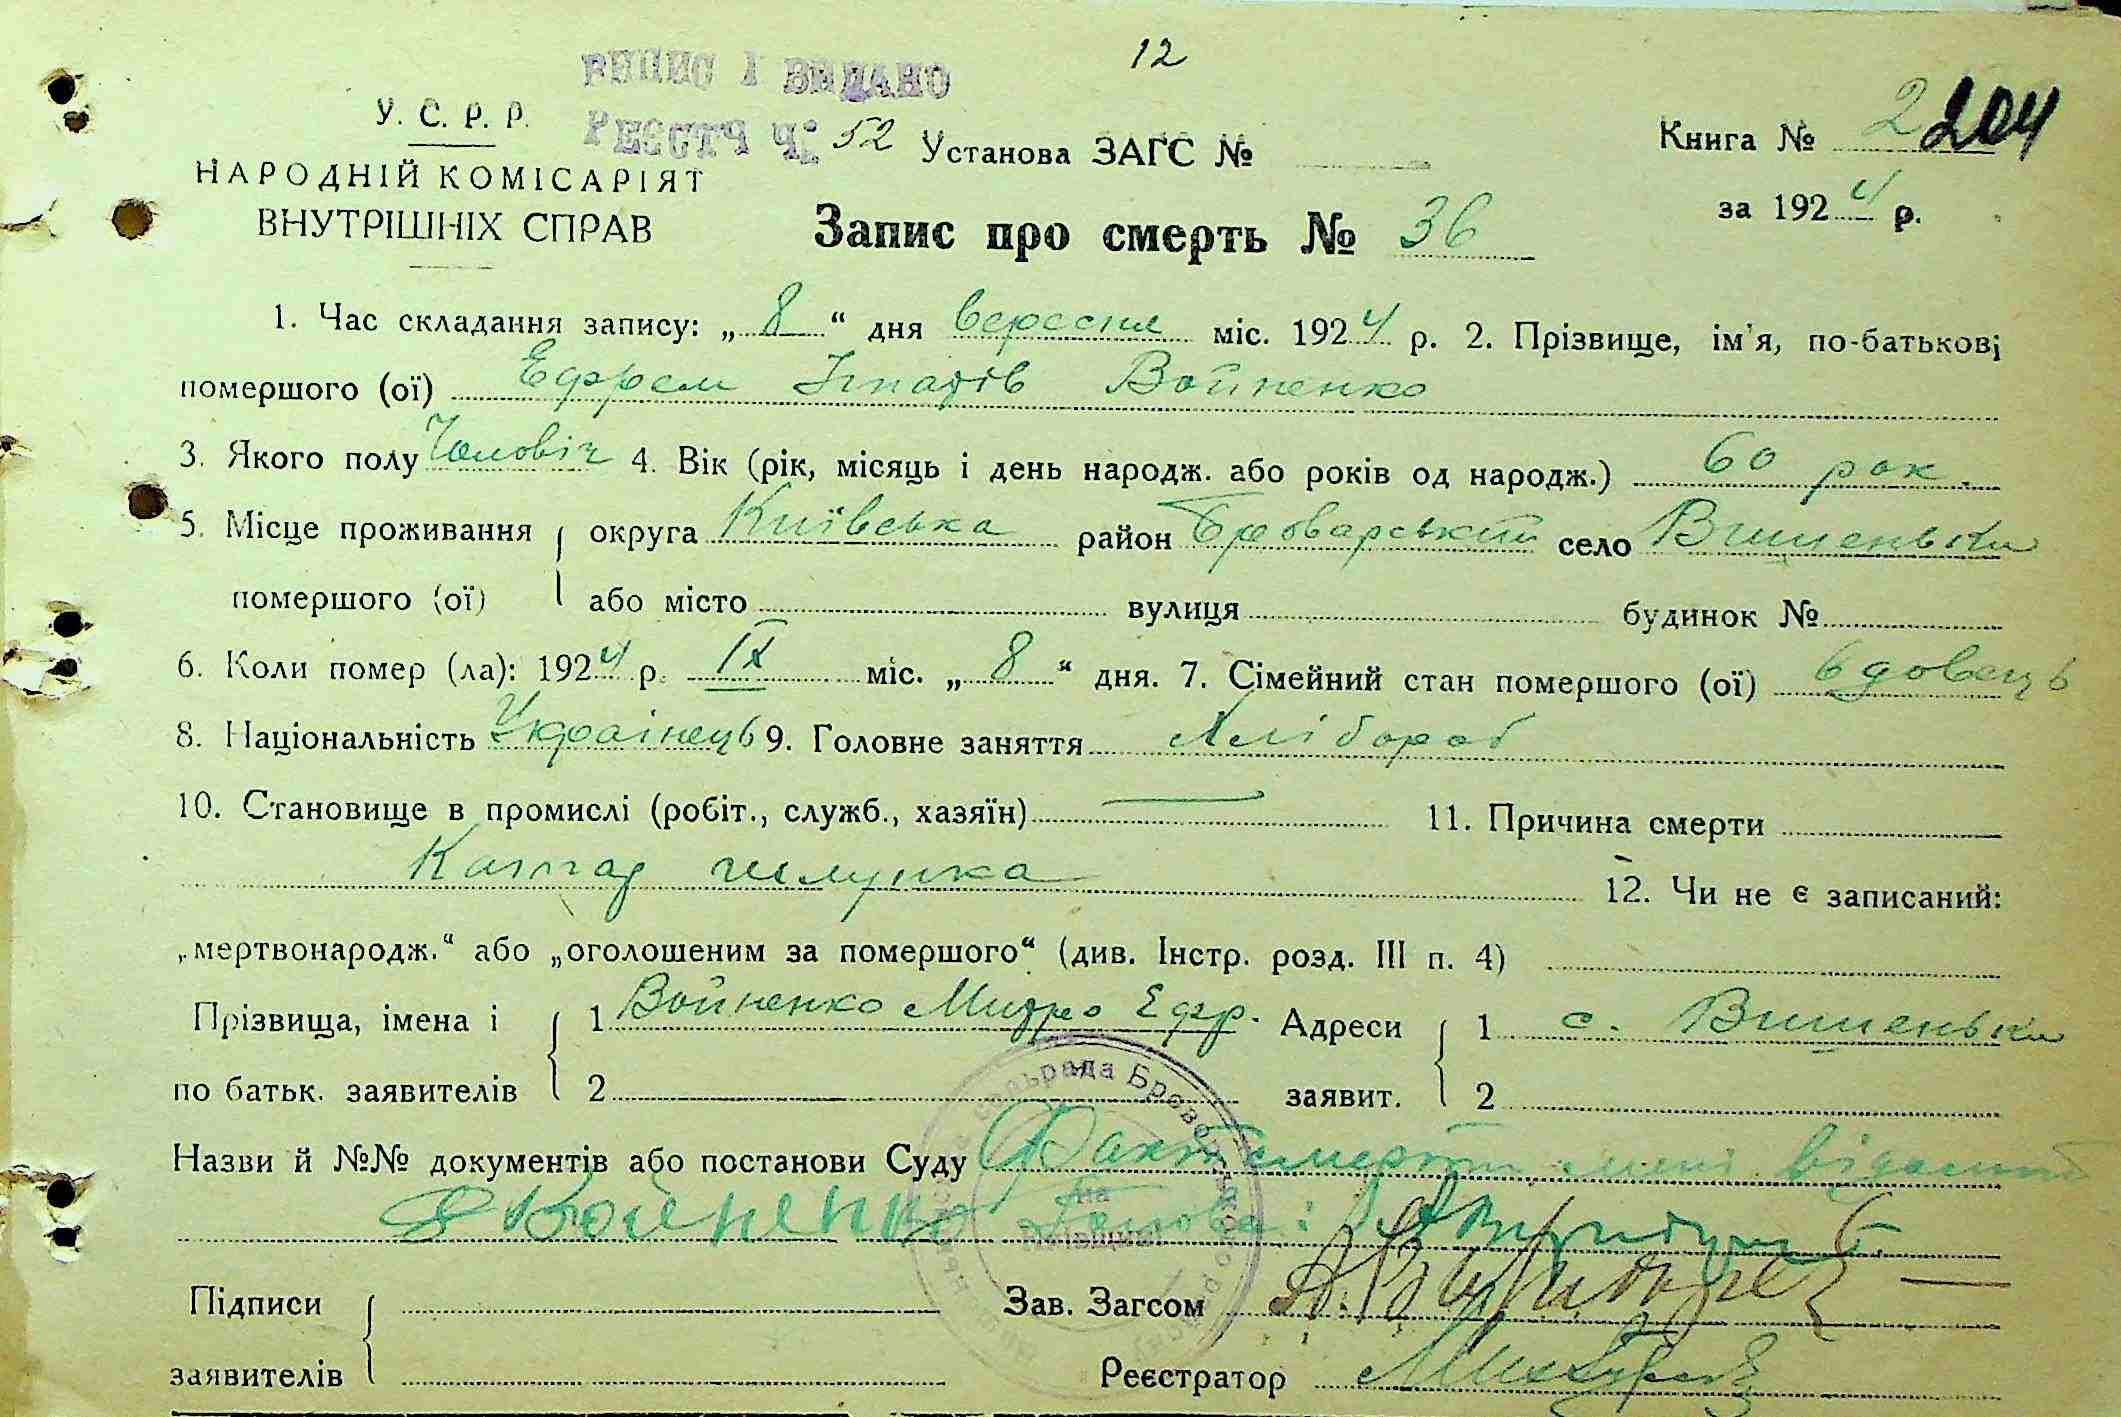 12
ВИПИС І ВИДАНО
РЕЄСТР Ч: 52
У. С. Р. Р.
НАРОДНІЙ КОМІСАРІЯТ
ВНУТРІШНІХ СПРАВ
Установа ЗАГС №
Книга № 2 204
за 1924 р.
Запис про смерть № 36
1. Час складання запису: „ 8 “ дня вересня міс. 1924 р. 2. Прізвище, ім'я, по-батькові
помершого (ої) Ефрем Ігнатів Войненко
3. Якого полу Чоловіч 4. Вік (рік, місяць і день народж. або років од народж.) 60 рок.
5. Місце проживання округа Київська район Броварський село Вишеньки
помершого (ої) або місто вулиця будинок №
6. Коли помер (ла): 1924 р. IX міс. „ 8 “ дня. 7. Сімейний стан помершого (ої) вдовець
8. Національність Українець 9. Головне заняття Хлібороб
10. Становище в промислі (робіт., служб., хазяїн) — 11. Причина смерти
шлунка 12. Чи не є записаний:
„мертвонародж.“ або „оголошеним за помершого“ (див. Інстр. розд. III п. 4)
Прізвища, імена і 1 Войненко Митро Ефр. Адреси 1 с. Вишеньки
по батьк. заявителів 2 заявит. 2
Назви й №№ документів або постанови Суду Факт смерти мені відомий
Войненко Голова:
Підписи Зав. Загсом
заявителів Реєстратор
сільрада Броварського
на Київщині